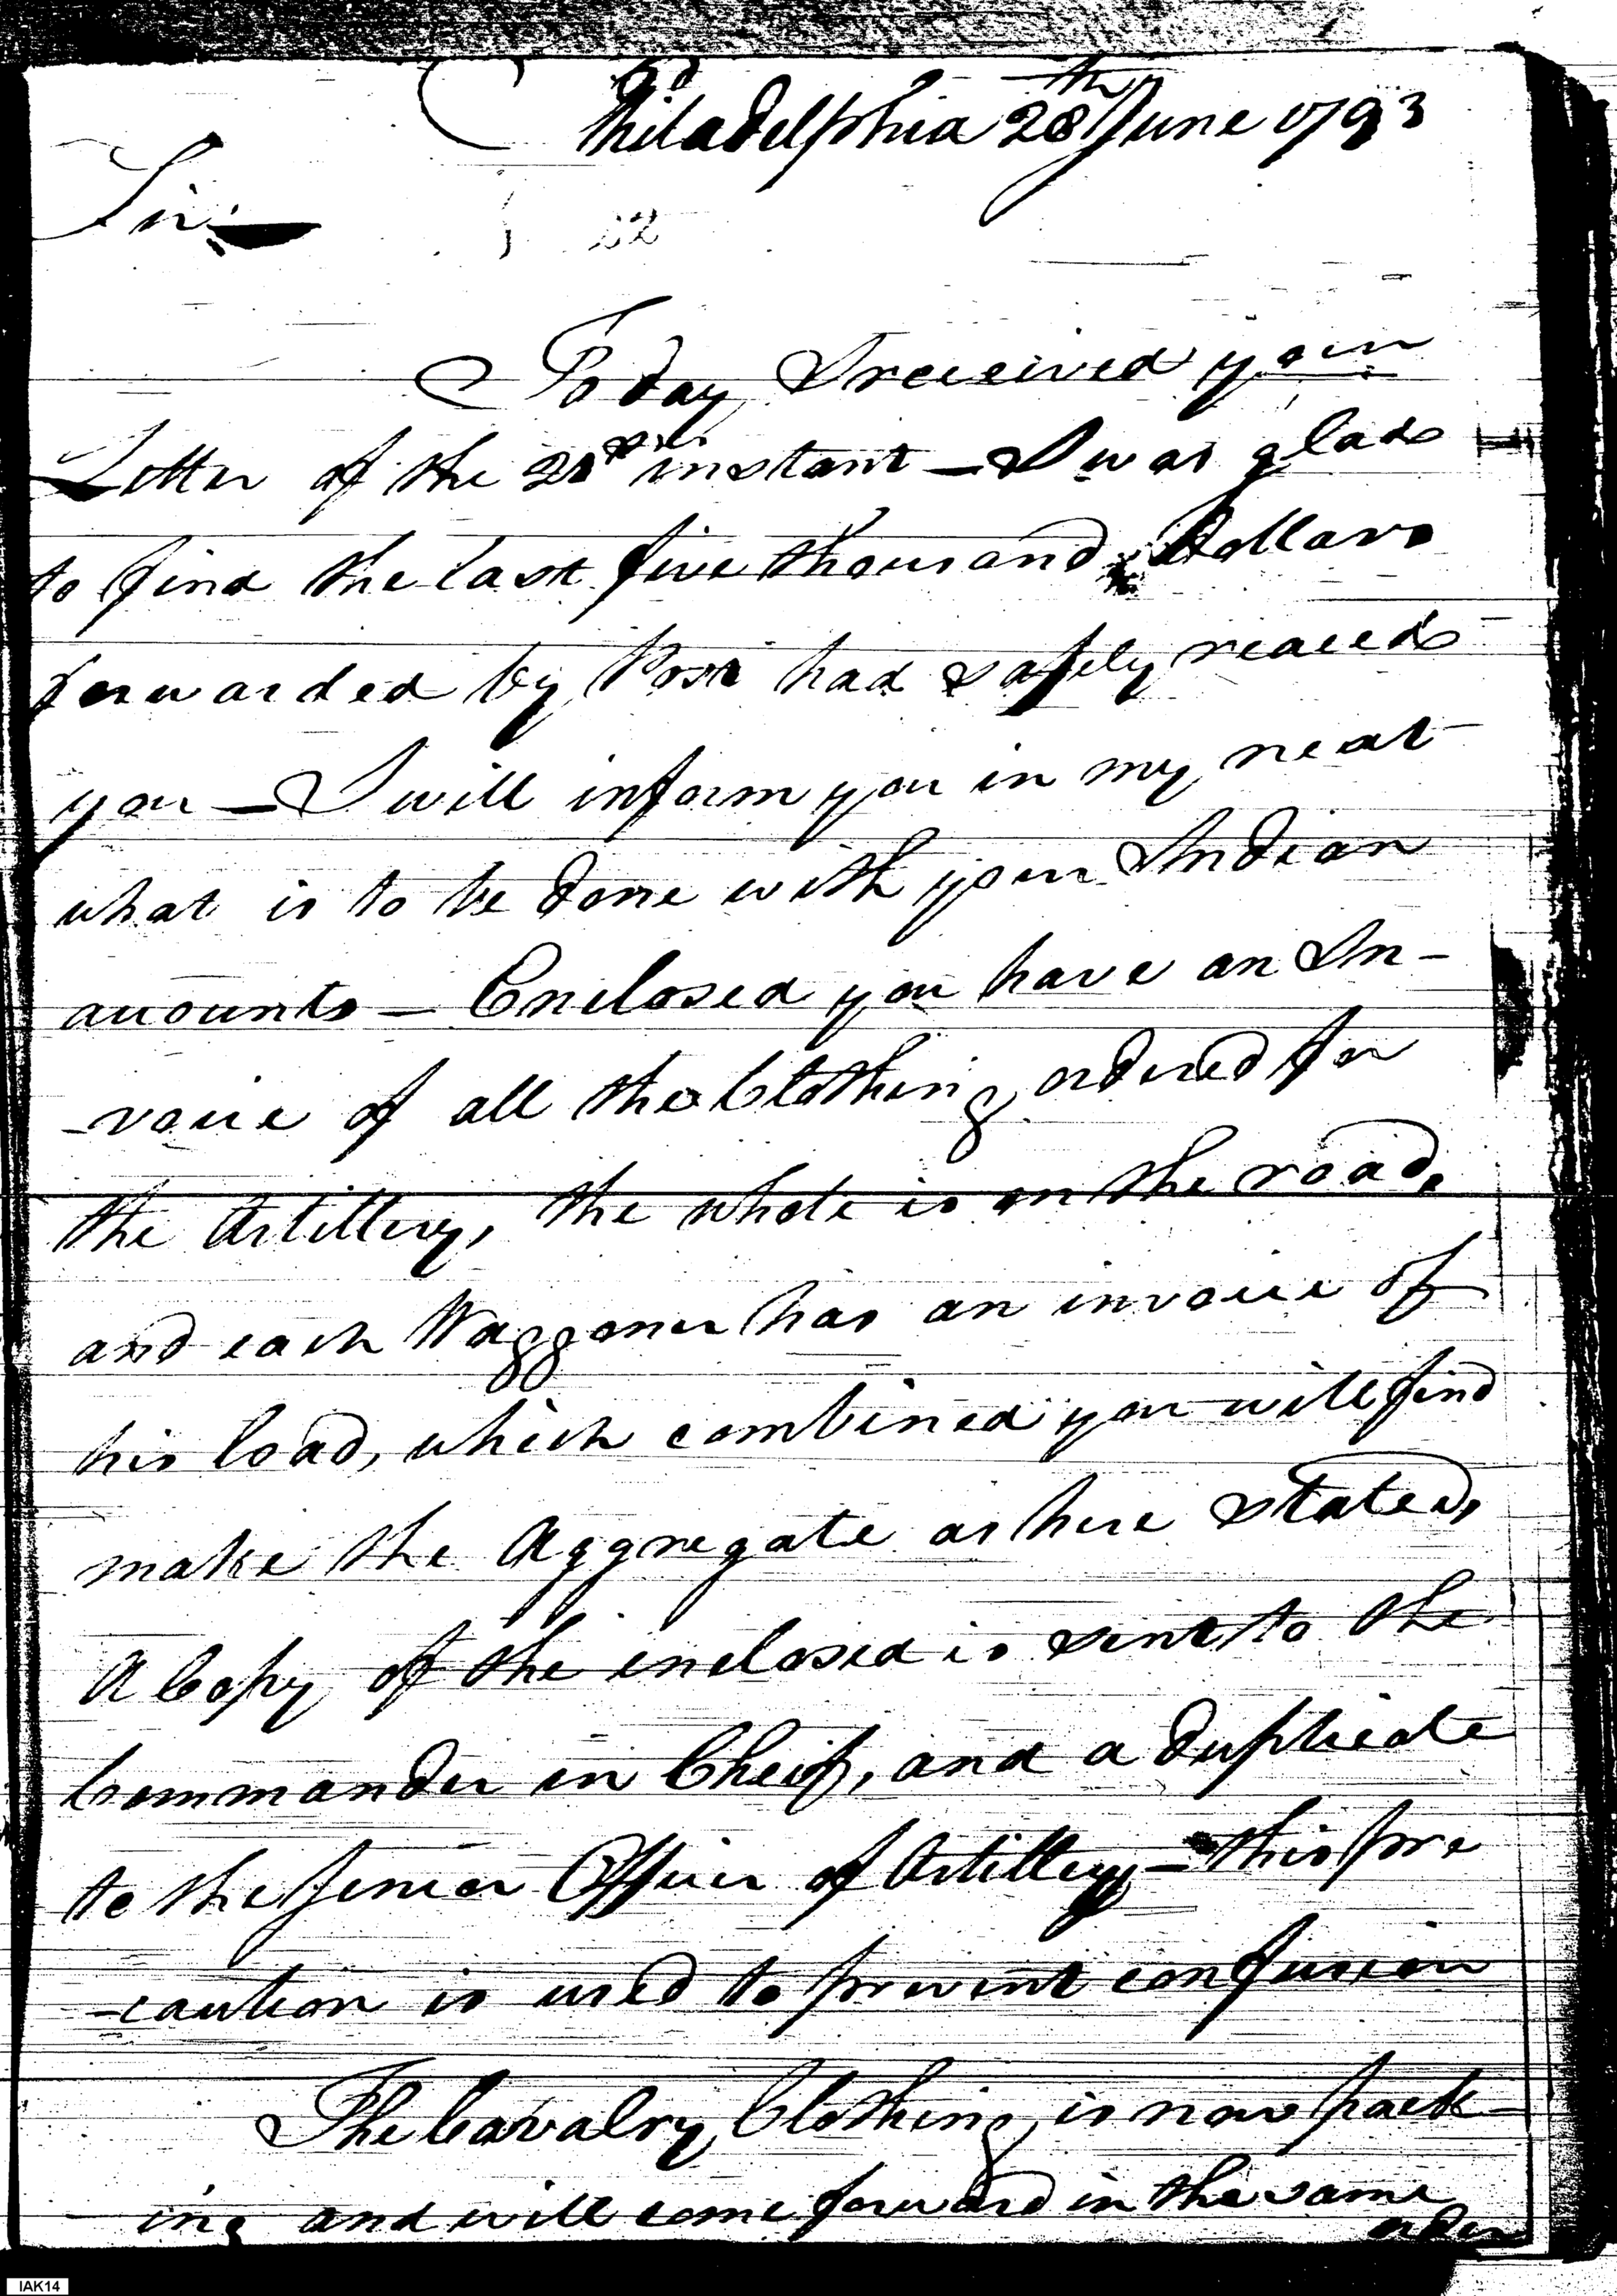 Philadelphia 28th June 1793
Sir,
22
To day I received your
Letter of the 21st instant — I was glad
to find the last five thousand Dollars
forwarded by Post had safely reaced
you — I will inform you in my next
what is to be done with your Indian
accounts — Enclosed you have an In-
-voice of all the Clothing ordered for
the Artillery, the whole is on the road,
and each Waggoner has an invoice of
his load, which combined you will find
make the Aggregate as here stated,
A Copy of the enclosed is sent to the
Commander in Cheif, and a duplicate
to the Senior Officer of Artillery — this pre
-caution is used to prevent confusion
The Cavalry Clothing is now pack-
ing and will come forward in the same
order
IAK14